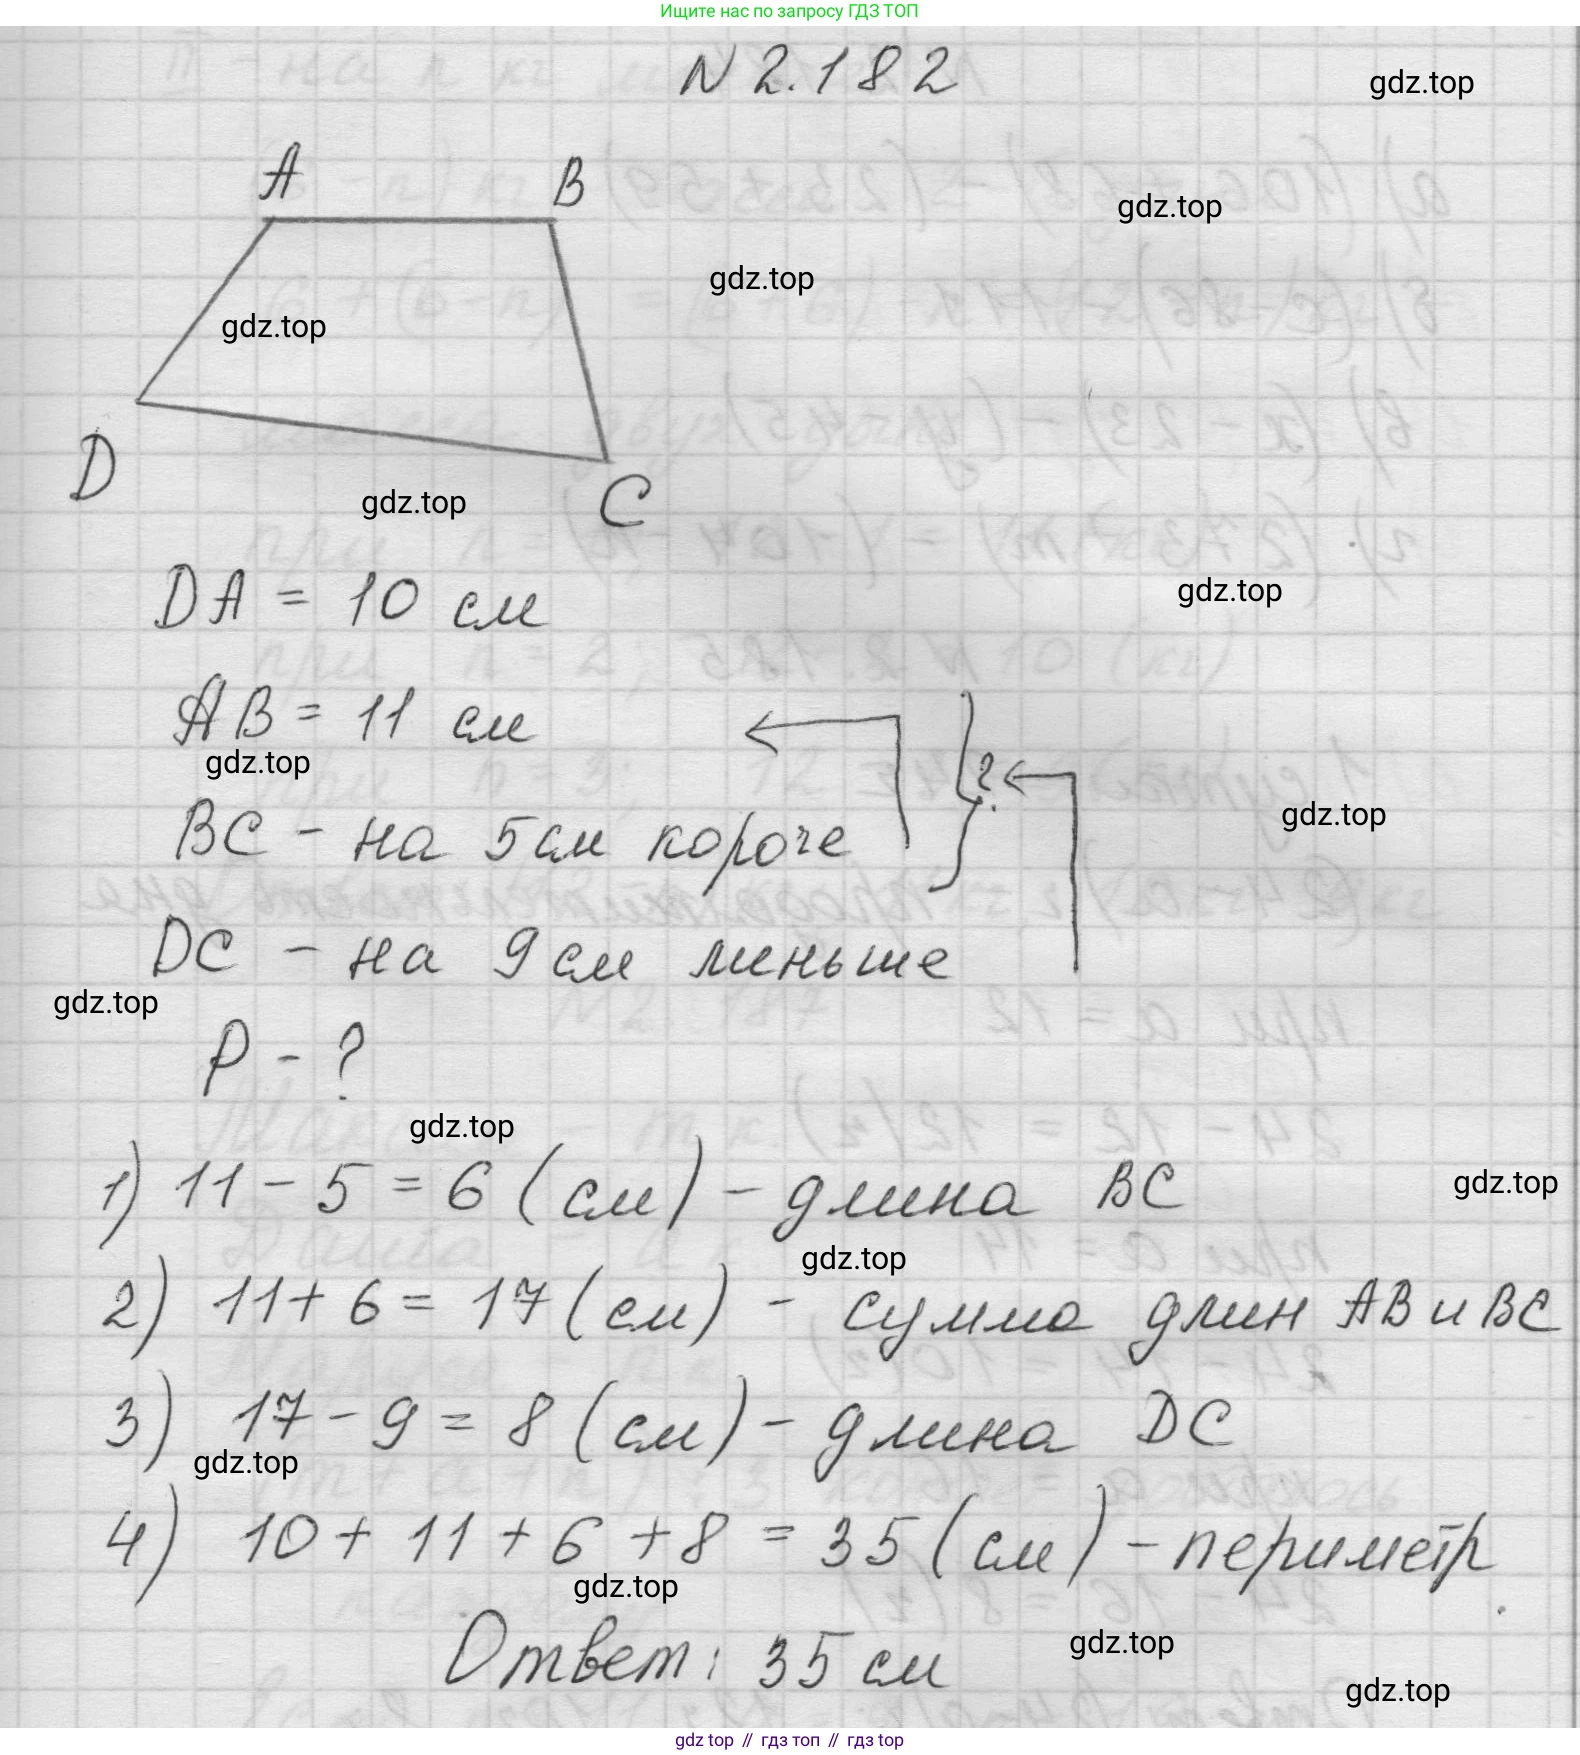 Ищите нас по запросу ГДЗ ТОП
N 2.182
gdz.top
A B
gdz.top
gdz.top
gdz.top
D
gdz.top
C
DA = 10 см
gdz.top
AB = 11 см
gdz.top
?
BC - на 5 см короче
gdz.top
DC - на 9 см меньше
gdz.top
P - ?
gdz.top
1) 11 - 5 = 6 (см) - длина BC
gdz.top
gdz.top
2) 11 + 6 = 17 (см) - сумма длин AB и BC
3) 17 - 9 = 8 (см) - длина DC
gdz.top
4) 10 + 11 + 6 + 8 = 35 (см) - периметр
gdz.top
Ответ: 35 см
gdz.top
gdz.top
gdz top // гдз топ // гдз top